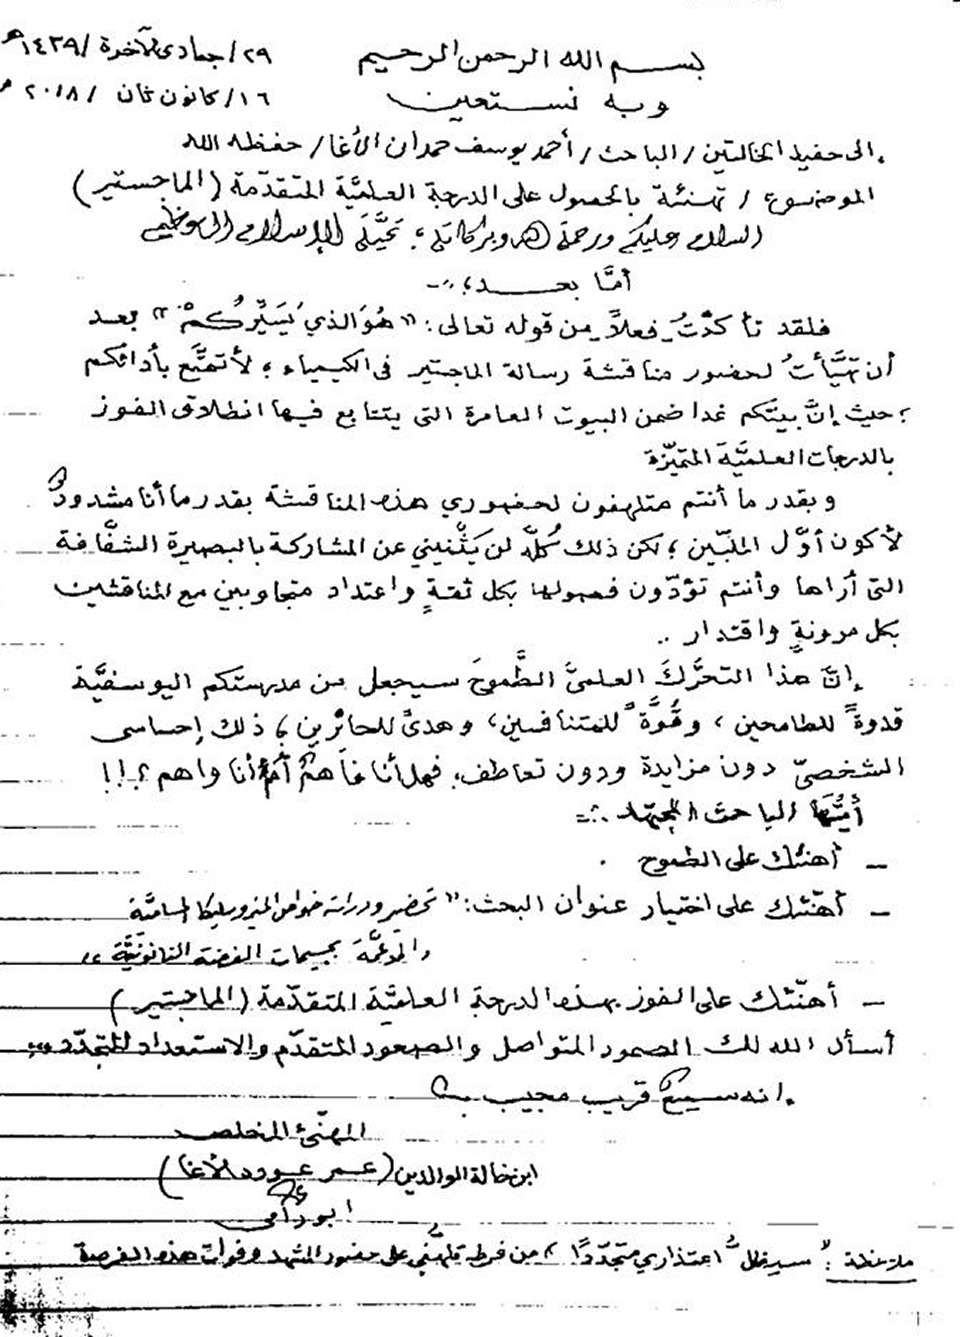 ٢٩/جمادى الآخرة/١٤٣٩هـ
بسم الله الرحمن الرحيم
١٦/كانون ثان/٢٠١٨م
وبه نستعين
إلى حفيد الخالتين/الباحث/أحمد يوسف حمدان الأغا/حفظه الله
الموضوع/تهنئة بالحصول على الدرجة العلميَّة المتقدّمة (الماجستير)
السلام عليكم ورحمة الله وبركاته؛ تحيَّة الإسلام العظيم
أمَّا بعد؛؛-
فلقد تأكدّتُ فعلاً من قوله تعالى: "هُوَ الذي يُسَيِّرُكُمْ" بعد
أن تهيَّأتُ لحضور مناقشة رسالة الماجتير في الكيمياء، لأتمتَّع بأدائكم
؛حيث إنَّ بيتكم غدا ضمن البيوت العامرة التي يتتابع فيها انطلاق الفوز
بالدرجات العلميَّة المتميّزة
وبقدر ما أنتم متلهفون لحضوري هذه المناقشة بقدر ما أنا مشدودٌ
لأكون أوَّل الملبّين، لكن ذلك كُلَّه لن يَثْنيني عن المشاركة بالبصيرة الشفَّافة
التي أراها وأنتم تؤدّون فصولها بكل ثقةٍ واعتداد متجاوبين مع المناقشين
بكل مرونةٍ واقتدار ..
إنَّ هذا التحرُّكَ العلميَّ الطَّموحَ سيجعل من مدرستكم اليوسفيَّة
قدوةً للطامحين، وقُوَّةً للمتنافسين، وهدىً للحائرين، ذلك إحساسي
الشخصيّ دون مزايدة ودون تعاطف، فهل أنا فاهمٌ أمْ أنا واهم؟!!
أيُّهَا الباحث المجتهد :-
- أهنئك على الطموح .
- أهنّئك على اختيار عنوان البحث: "تحضير ودراسة خواص الميزوسيليكا المساميَّة
والمدعَّمة بجسيمات الفضة النانونيَّة"
- أهنّئك على الفوز بهذه الدرجة العلميَّة المتقدّمة (الماجتير)
أسأل الله لك الصمود المتواصل والصعود المتقدّم والاستعداد للتجدّد،،،
إنه سميعٌ قريب مجيب
المهنّئ المخلص
ابن خالة الوالدين (عمر عودة الأغا)
ابو رامي
ملاحظة: "سيظلُّ اعتذاري متجدّدًا" من فرط تلهُّفي على حضور المشهد وفوات هذه الفرصة